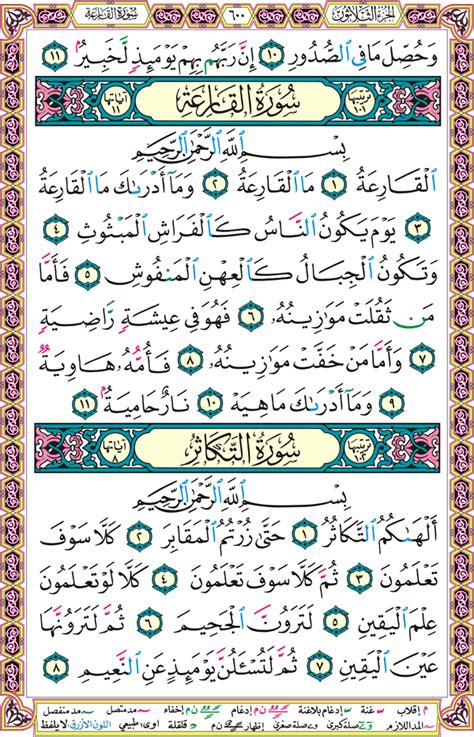 الجزء الثلاثون ٦٠٠ سورة القارعة
وَحُصِّلَ مَا فِي ٱلصُّدُورِ ١٠ إِنَّ رَبَّهُم بِهِمْ يَوْمَئِذٍ لَّخَبِيرٌ ١١
ترتيبها ١٠١ سُورَةُ القَارِعَةِ آياتها ١١
بِسْمِ ٱللَّهِ ٱلرَّحْمَٰنِ ٱلرَّحِيمِ
ٱلْقَارِعَةُ ١ مَا ٱلْقَارِعَةُ ٢ وَمَآ أَدْرَىٰكَ مَا ٱلْقَارِعَةُ
٣ يَوْمَ يَكُونُ ٱلنَّاسُ كَٱلْفَرَاشِ ٱلْمَبْثُوثِ ٤
وَتَكُونُ ٱلْجِبَالُ كَٱلْعِهْنِ ٱلْمَنفُوشِ ٥ فَأَمَّا
مَن ثَقُلَتْ مَوَٰزِينُهُۥ ٦ فَهُوَ فِي عِيشَةٍ رَّاضِيَةٍ
٧ وَأَمَّا مَنْ خَفَّتْ مَوَٰزِينُهُۥ ٨ فَأُمُّهُۥ هَاوِيَةٌ
٩ وَمَآ أَدْرَىٰكَ مَا هِيَهْ ١٠ نَارٌ حَامِيَةٌۢ ١١
ترتيبها ١٠٢ سُورَةُ التَّكَاثُرِ آياتها ٨
بِسْمِ ٱللَّهِ ٱلرَّحْمَٰنِ ٱلرَّحِيمِ
أَلْهَىٰكُمُ ٱلتَّكَاثُرُ ١ حَتَّىٰ زُرْتُمُ ٱلْمَقَابِرَ ٢ كَلَّا سَوْفَ
تَعْلَمُونَ ٣ ثُمَّ كَلَّا سَوْفَ تَعْلَمُونَ ٤ كَلَّا لَوْ تَعْلَمُونَ
عِلْمَ ٱلْيَقِينِ ٥ لَتَرَوُنَّ ٱلْجَحِيمَ ٦ ثُمَّ لَتَرَوُنَّهَا
عَيْنَ ٱلْيَقِينِ ٧ ثُمَّ لَتُسْـَٔلُنَّ يَوْمَئِذٍ عَنِ ٱلنَّعِيمِ ٨
م إقلاب س غنة إدغام بلاغنة ن م إدغام ن م إخفاء مد متصل مد منفصل
المد اللازم صلة كبرى صلة صغرى إظهار ن م قلقلة اوى: طبيعي اللون الأزرق لا يلفظ